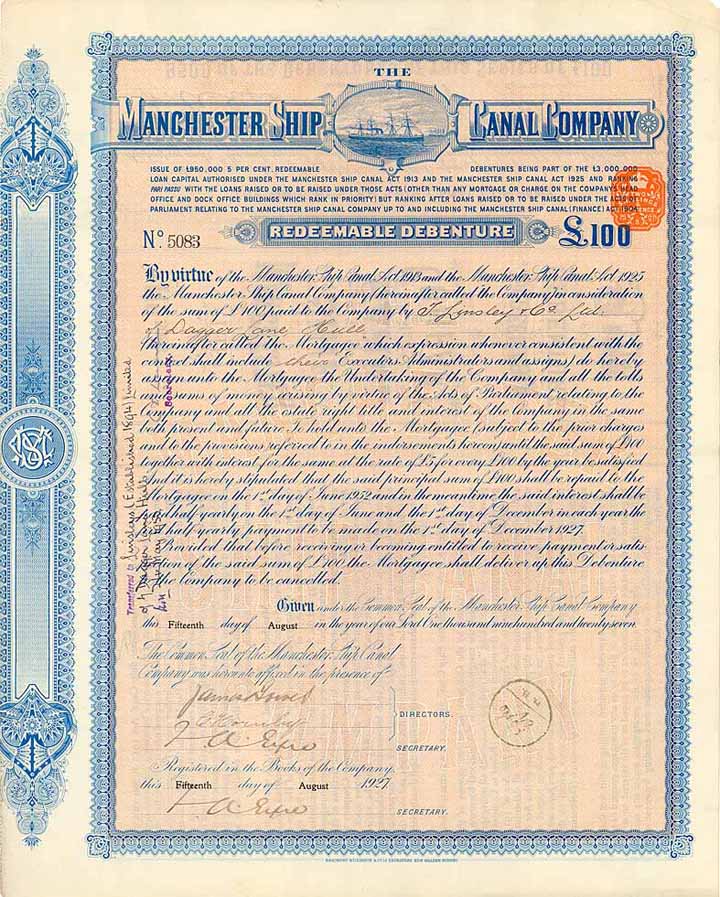 THE
MANCHESTER SHIP CANAL COMPANY
ISSUE OF £950,000 5 PER CENT. REDEEMABLE DEBENTURES BEING PART OF THE £3,000,000
LOAN CAPITAL AUTHORISED UNDER THE MANCHESTER SHIP CANAL ACT 1913 AND THE MANCHESTER SHIP CANAL ACT 1925 AND RANKING
PARI PASSU WITH THE LOANS RAISED OR TO BE RAISED UNDER THOSE ACTS (OTHER THAN ANY MORTGAGE OR CHARGE ON THE COMPANY'S HEAD
OFFICE AND DOCK OFFICE BUILDINGS WHICH RANK IN PRIORITY) BUT RANKING AFTER LOANS RAISED OR TO BE RAISED UNDER THE ACTS OF
PARLIAMENT RELATING TO THE MANCHESTER SHIP CANAL COMPANY UP TO AND INCLUDING THE MANCHESTER SHIP CANAL (FINANCE) ACT 1904
No. 5083
REDEEMABLE DEBENTURE
£100
By virtue of the Manchester Ship Canal Act 1913 and the Manchester Ship Canal Act 1925
the Manchester Ship Canal Company (hereinafter called the Company) in consideration
of the sum of £100 paid to the Company by T. Linsley & Co. Ltd.
of Dagger Lane Hull
(hereinafter called the Mortgagee which expression whenever consistent with the
context shall include their Executors Administrators and assigns) do hereby
assign unto the Mortgagee the Undertaking of the Company and all the tolls
and sums of money arising by virtue of the Acts of Parliament relating to the
Company and all the estate right title and interest of the Company in the same
both present and future To hold unto the Mortgagee (subject to the prior charges
and to the provisions referred to in the indorsements hereon) until the said sum of £100
together with interest for the same at the rate of £5 for every £100 by the year be satisfied
And it is hereby stipulated that the said principal sum of £100 shall be repaid to the
Mortgagee on the 1st day of June 1952 and in the meantime the said interest shall be
paid half yearly on the 1st day of June and the 1st day of December in each year the
first half yearly payment to be made on the 1st day of December 1927.
Provided that before receiving or becoming entitled to receive payment or satis
faction of the said sum of £100 the Mortgagee shall deliver up this Debenture
to the Company to be cancelled.
Given under the Common Seal of the Manchester Ship Canal Company
this Fifteenth day of August in the year of our Lord One thousand nine hundred and twenty seven.
The Common Seal of the Manchester Ship Canal
Company was hereunto affixed in the presence of
DIRECTORS.
SECRETARY.
Registered in the Books of the Company,
this Fifteenth day of August 1927
SECRETARY.
Transferred to Linsleys (Established 1894) Limited
of 4 Dagger Lane Hull